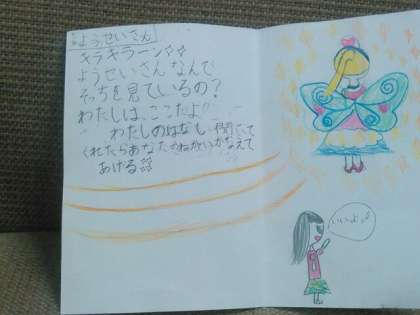 「ようせいさん」
キラキラーン☆☆
ようせいさんなんで
そっちを見ているの?
わたしは、ここだよ!!
わたしのはなしを聞いて
くれたらあなたのねがいかなえて
あげる
いいよ